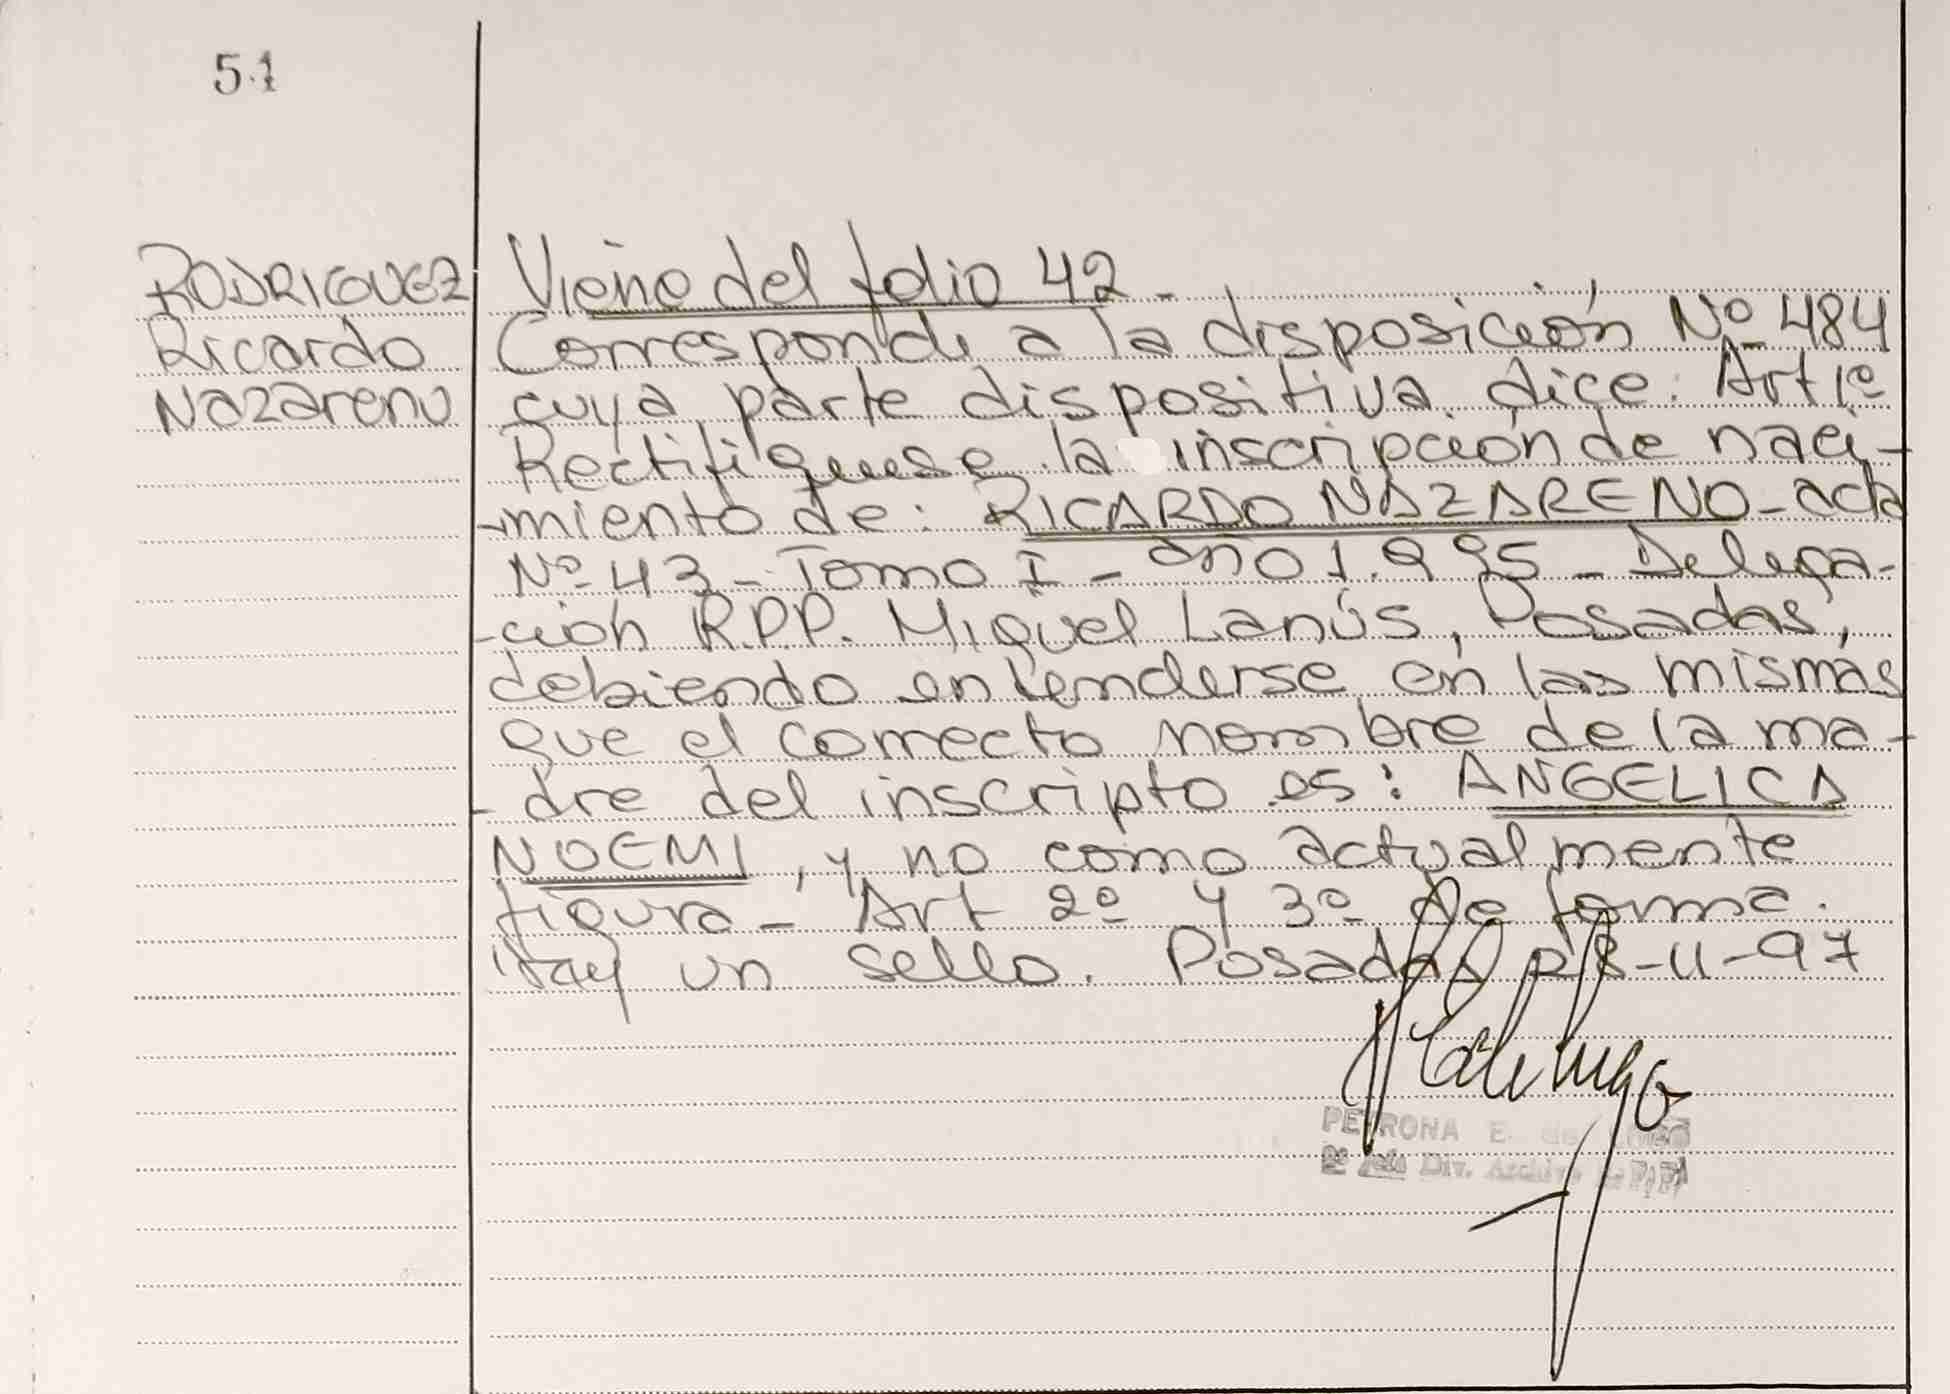 51
RODRIGUEZ
Ricardo
Nazareno
Viene del folio 42 -
Corresponde a la disposición Nº 484
cuya parte dispositiva dice: Art 1º
Rectifiquese la inscripción de naci-
-miento de: RICARDO NAZARENO - acta
Nº 43 - Tomo I - año 1.995 - Delega-
-ción R.P.P. Miguel Lanús, Posadas,
debiendo entenderse en las mismas
que el correcto nombre de la ma-
-dre del inscripto es: ANGELICA
NOEMI, y no como actualmente
figura - Art 2º y 3º de forma.
Hay un sello. Posadas 28-11-97
PETRONA E. de
Div. Archivo